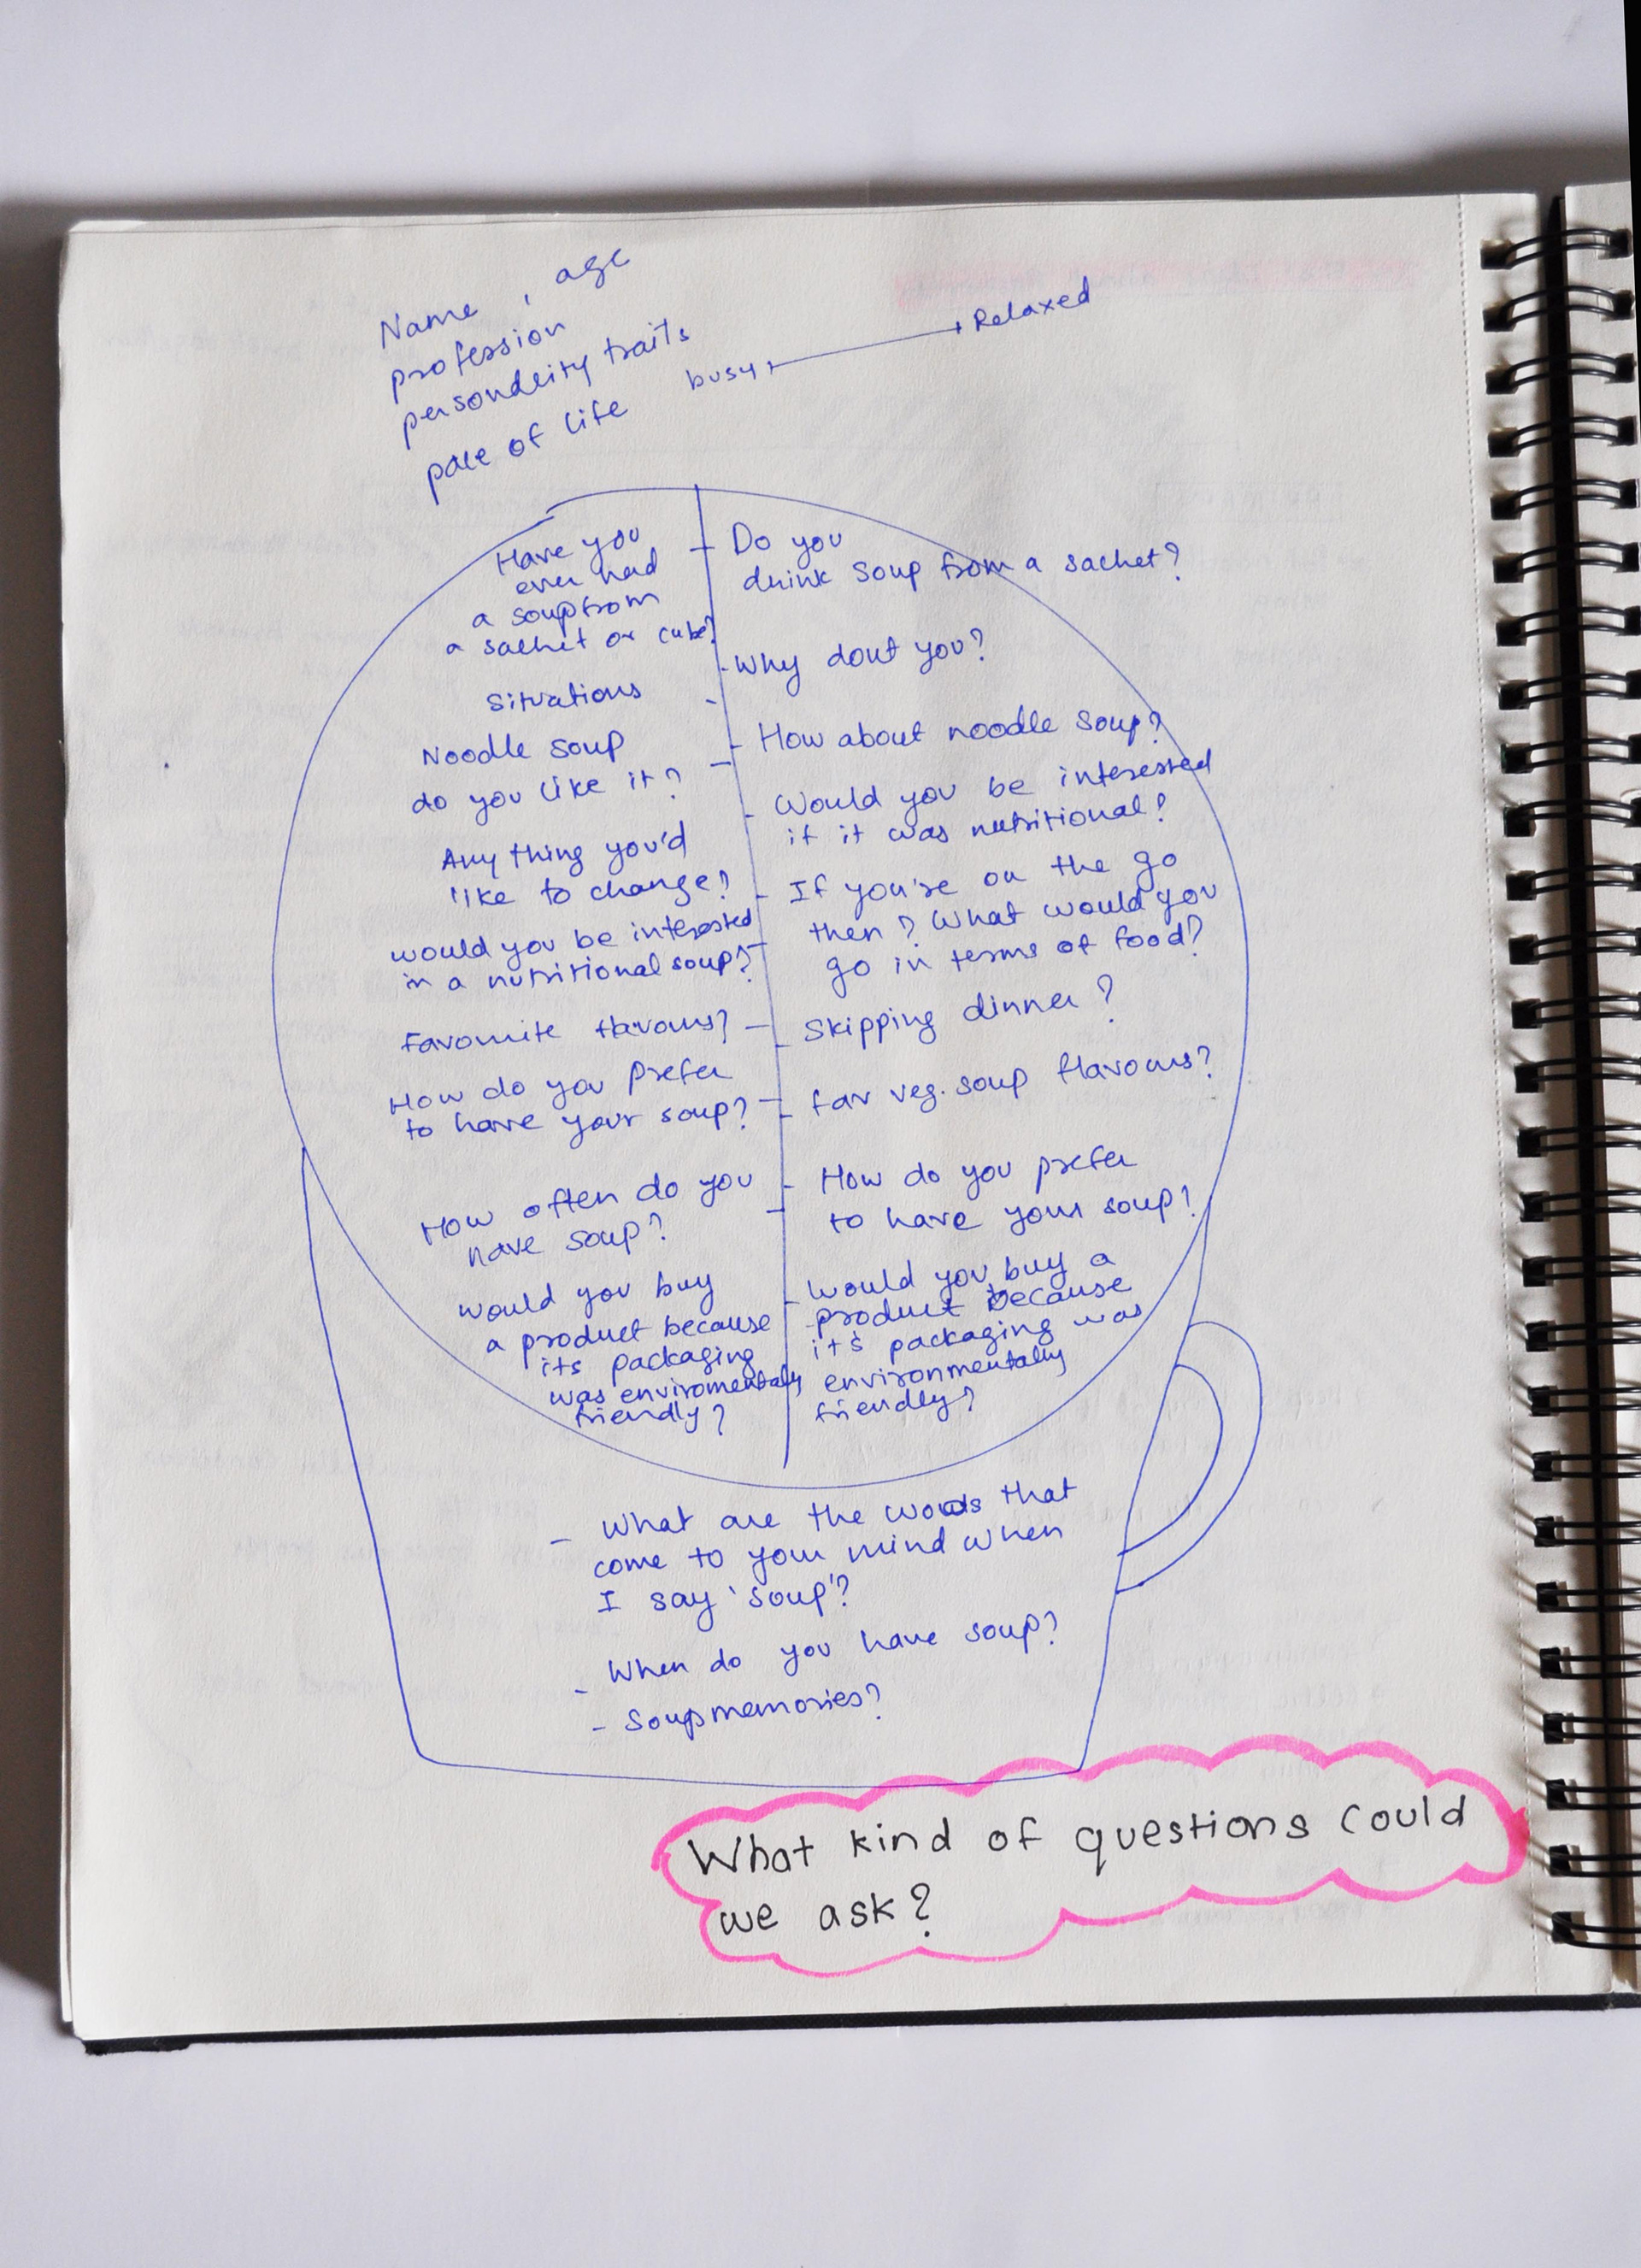 Name, age
profession
personality traits
pace of life busy Relaxed
Have you
ever had
a soup from
a sachet or cube?
Situations
Noodle soup
do you like it?
Any thing you'd
like to change?
would you be interested
in a nutritional soup?
Favourite flavours?
How do you prefer
to have your soup?
How often do you
have soup?
would you buy
a product because
its packaging
was enviromentally
friendly?
- Do you
drink soup from a sachet?
- Why dont you?
- How about noodle soup?
- Would you be interested
if it was nutritional?
- If you're on the go
then? What would you
go in terms of food?
- Skipping dinner?
- fav veg. soup flavours?
- How do you prefer
to have your soup?
- Would you buy a
product because
it's packaging was
environmentally
friendly?
- What are the words that
come to your mind when
I say 'soup'?
- When do you have soup?
- Soup memories?
What kind of questions could
we ask?